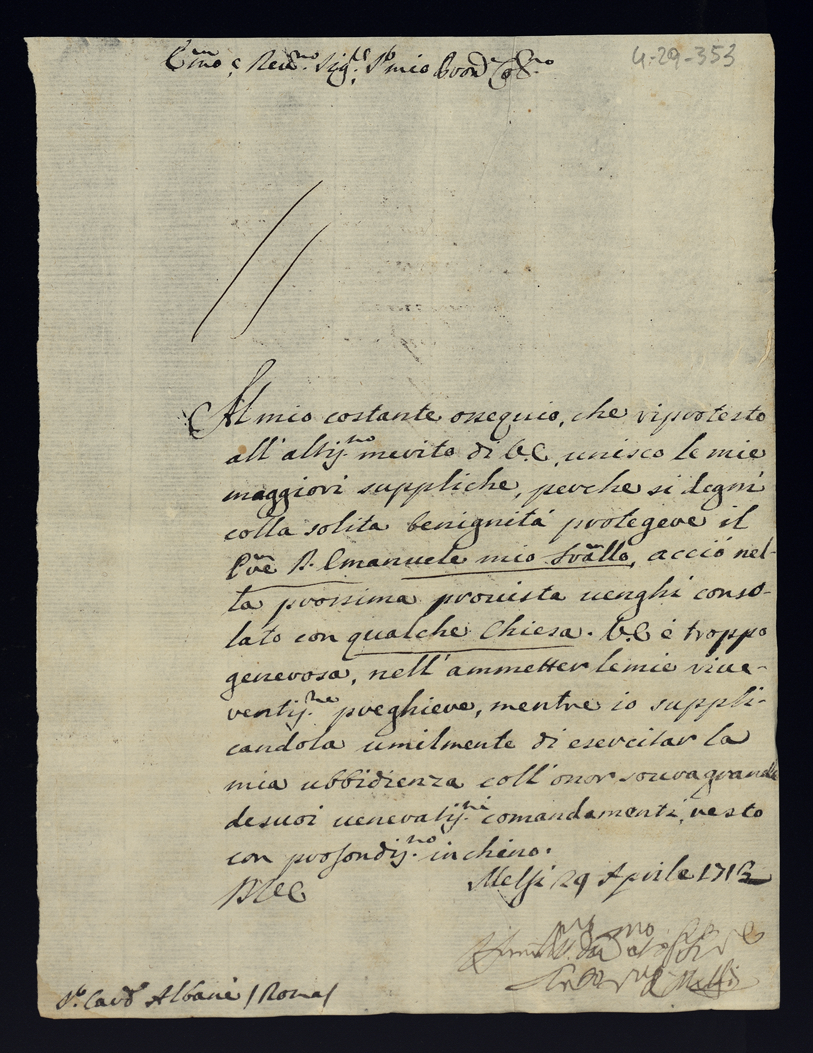 4-29-353
Em̃o e Reu.mo Sig.r P̃ron mio Col.mo
Al mio costante ossequio, che riprotesto
all'altiss.mo merito di V.E., unisco le mie
maggiori suppliche, perche si degni
colla solita benignità proteggere il
P̃re D. Emanuele mio fra͂llo, acciò nel-
la prossima prouista uenghi conso-
lato con qualche Chiesa. V.E. è troppo
generosa, nell'ammetter le mie riue-
rentiss.me preghiere, mentre io suppli-
candola umilmente di esercitar la
mia ubbidienza coll'onor souragrande
de suoi ueneratiss.mi comandamenti, resto
con profondiss.mo inchino.
Di V.E.
Melfi 29 Aprile 1713
Melfi
S.r Card. Albani / Roma /